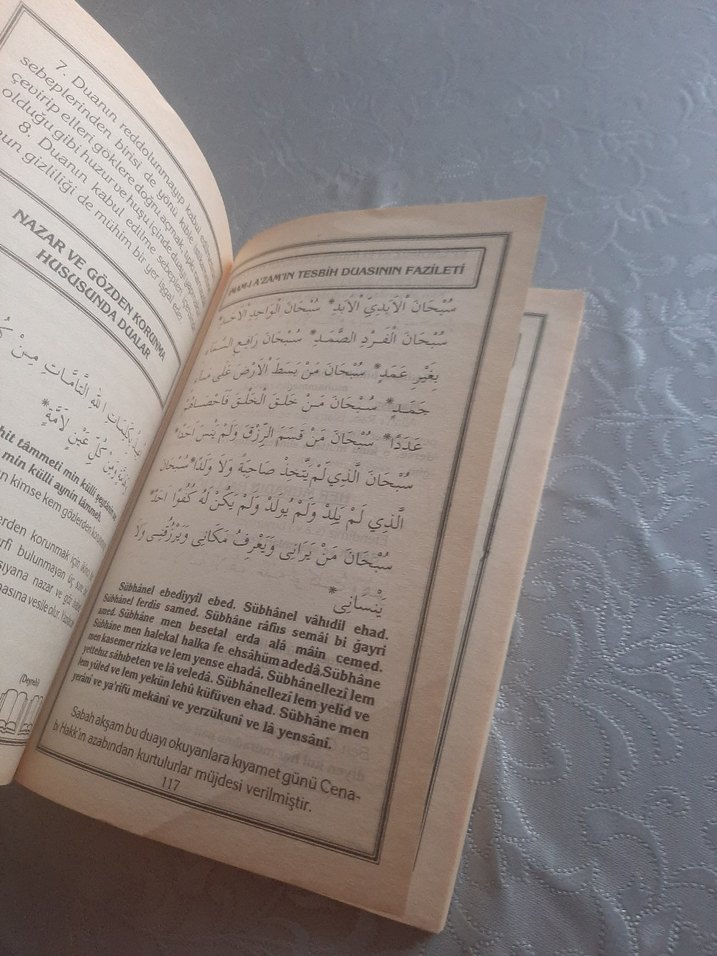 7. Duanın reddolunmayıp kabul
sebeplerinden birisi de yönü kıble
çevirip elleri göklere doğru açmak
olduğu gibi huzur ve huşu içinde dua
8. Duanın kabul edilme sebepleri
gizliliği de mühim bir yer işgal
NAZAR VE GÖZDEN KORUNMA
HUSUSUNDA DUALAR
بِكَلِمَاتِ اللهِ التَّامَّاتِ مِنْ
كُلِّ عَيْنٍ لاَمَّةٍ*
tâmmeti min külli
min külli aynin lâmmeh.
kimse kem gözlerden
korunmak için
bulunmayan üç
nazar ve göz
vesile olur.
(Deyrebi)
İMAM-I A'ZAM'IN TESBİH DUASININ FAZİLETİ
سُبْحَانَ اْلاَبَدِيِّ اْلاَبَدِ* سُبْحَانَ الْوَاحِدِ اْلاَحَدِ*
سُبْحَانَ الْفَرْدِ الصَّمَدِ* سُبْحَانَ رَافِعِ السَّمَاءِ
بِغَيْرِ عَمَدٍ* سُبْحَانَ مَنْ بَسَطَ اْلاَرْضَ عَلَى مَاءٍ
جَمَدٍ* سُبْحَانَ مَنْ خَلَقَ الْخَلْقَ فَاَحْصَاهُمْ
عَدَدًا* سُبْحَانَ مَنْ قَسَمَ الرِّزْقَ وَلَمْ يَنْسَ اَحَدًا*
سُبْحَانَ الَّذِي لَمْ يَتَّخِذْ صَاحِبَةً وَلاَ وَلَدًا* سُبْحَانَ
الَّذِي لَمْ يَلِدْ وَلَمْ يُولَدْ وَلَمْ يَكُنْ لَهُ كُفُوًا اَحَدٌ*
سُبْحَانَ مَنْ يَرَانِى وَيَعْرِفُ مَكَانِى وَيَرْزُقُنِى وَلاَ
يَنْسَانِى*
Sübhânel ebediyyil ebed. Sübhânel vâhıdil ehad.
Sübhânel ferdis samed. Sübhâne râfiıs semâi bi ğayri
amed. Sübhâne men besetal erda alâ mâin cemed.
Sübhâne men halekal halka fe ehsâhüm adedâ. Sübhâne
men kasemer rizka ve lem yense ehadâ. Sübhânellezi lem
yettehız sâhıbeten ve lâ veledâ. Sübhânellezî lem yelid ve
lem yûled ve lem yekün lehû küfüven ehad. Sübhâne men
yerâni ve ya'rifü mekâni ve yerzükuni ve lâ yensâni.
Sabah akşam bu duayı okuyanlara kıyamet günü Cena-
b-ı Hakk'ın azabından kurtulurlar müjdesi verilmiştir.
117